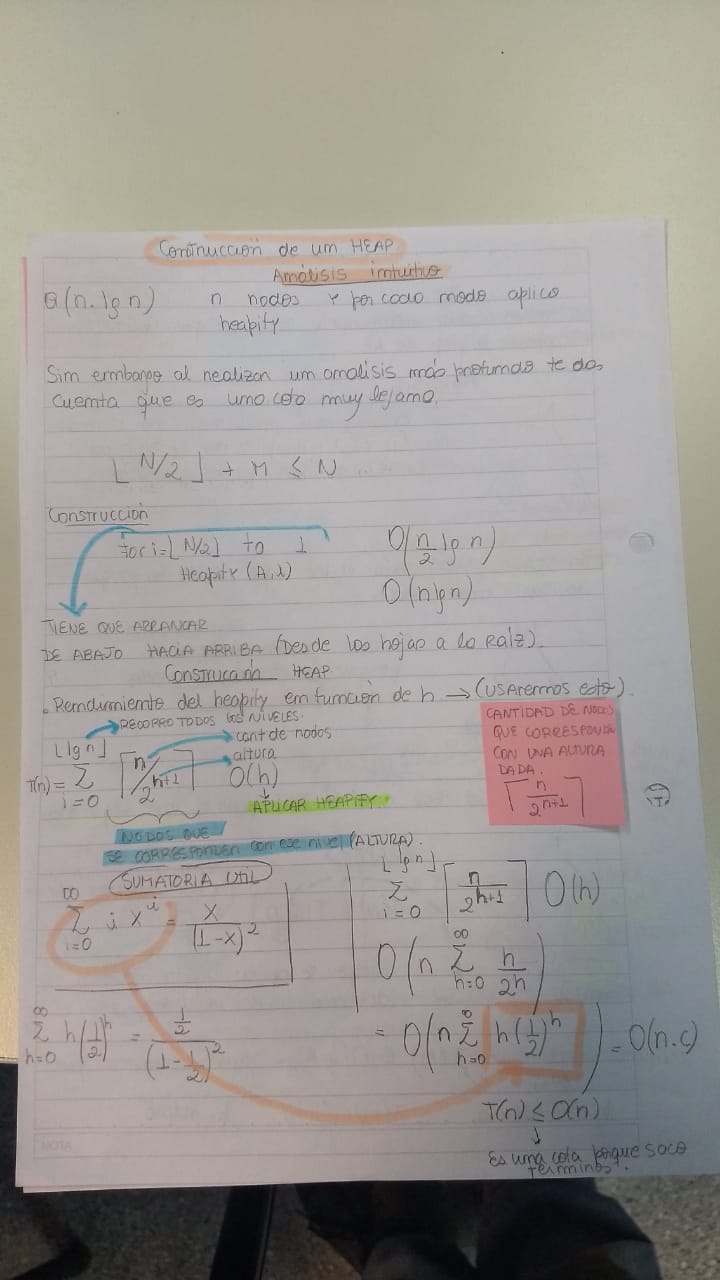 Contruccion de un HEAP
Análisis intuitivo
Θ(n.lgn) n nodos y por cada nodo aplico
heapify
Sin embargo al realizar un analisis más profundo te das
cuenta que es una cota muy lejana.
⌊N/2⌋ + M ≤ N
Construccion
for i=⌊N/2⌋ to 1
Heapify (A,i)
O(n/2 lg n)
O(nlgn)
TIENE QUE ARRANCAR
DE ABAJO HACIA ARRIBA (Desde las hojas a la Raíz).
Construccion HEAP
. Rendimiento del heapify en función de h → (USAremos esto).
RECORRO TODOS LOS NIVELES.
cant de nodos
altura
T(n) = ∑_{i=0}^{⌊lgn⌋} ⌈n/2^{h+1}⌉ O(h)
APLICAR HEAPIFY.
NODOS QUE
SE CORRESPONDEN con ese nivel (ALTURA).
CANTIDAD DE NODOS
QUE CORRESPONDEN
CON UNA ALTURA
DADA.
⌈n/2^{h+1}⌉
SUMATORIA UTIL
∑_{i=0}^{∞} i x^i = x/(1-x)^2
∑_{h=0}^{∞} h(1/2)^h = (1/2)/(1-1/2)^2
∑_{i=0}^{⌊lgn⌋} ⌈n/2^{h+1}⌉ O(h)
O(n ∑_{h=0}^{∞} h/2^h)
= O(n ∑_{h=0}^{∞} h(1/2)^h) = O(n.c)
T(n) ≤ O(n)
↓
Es una cota porque saco
terminos.
NOTA